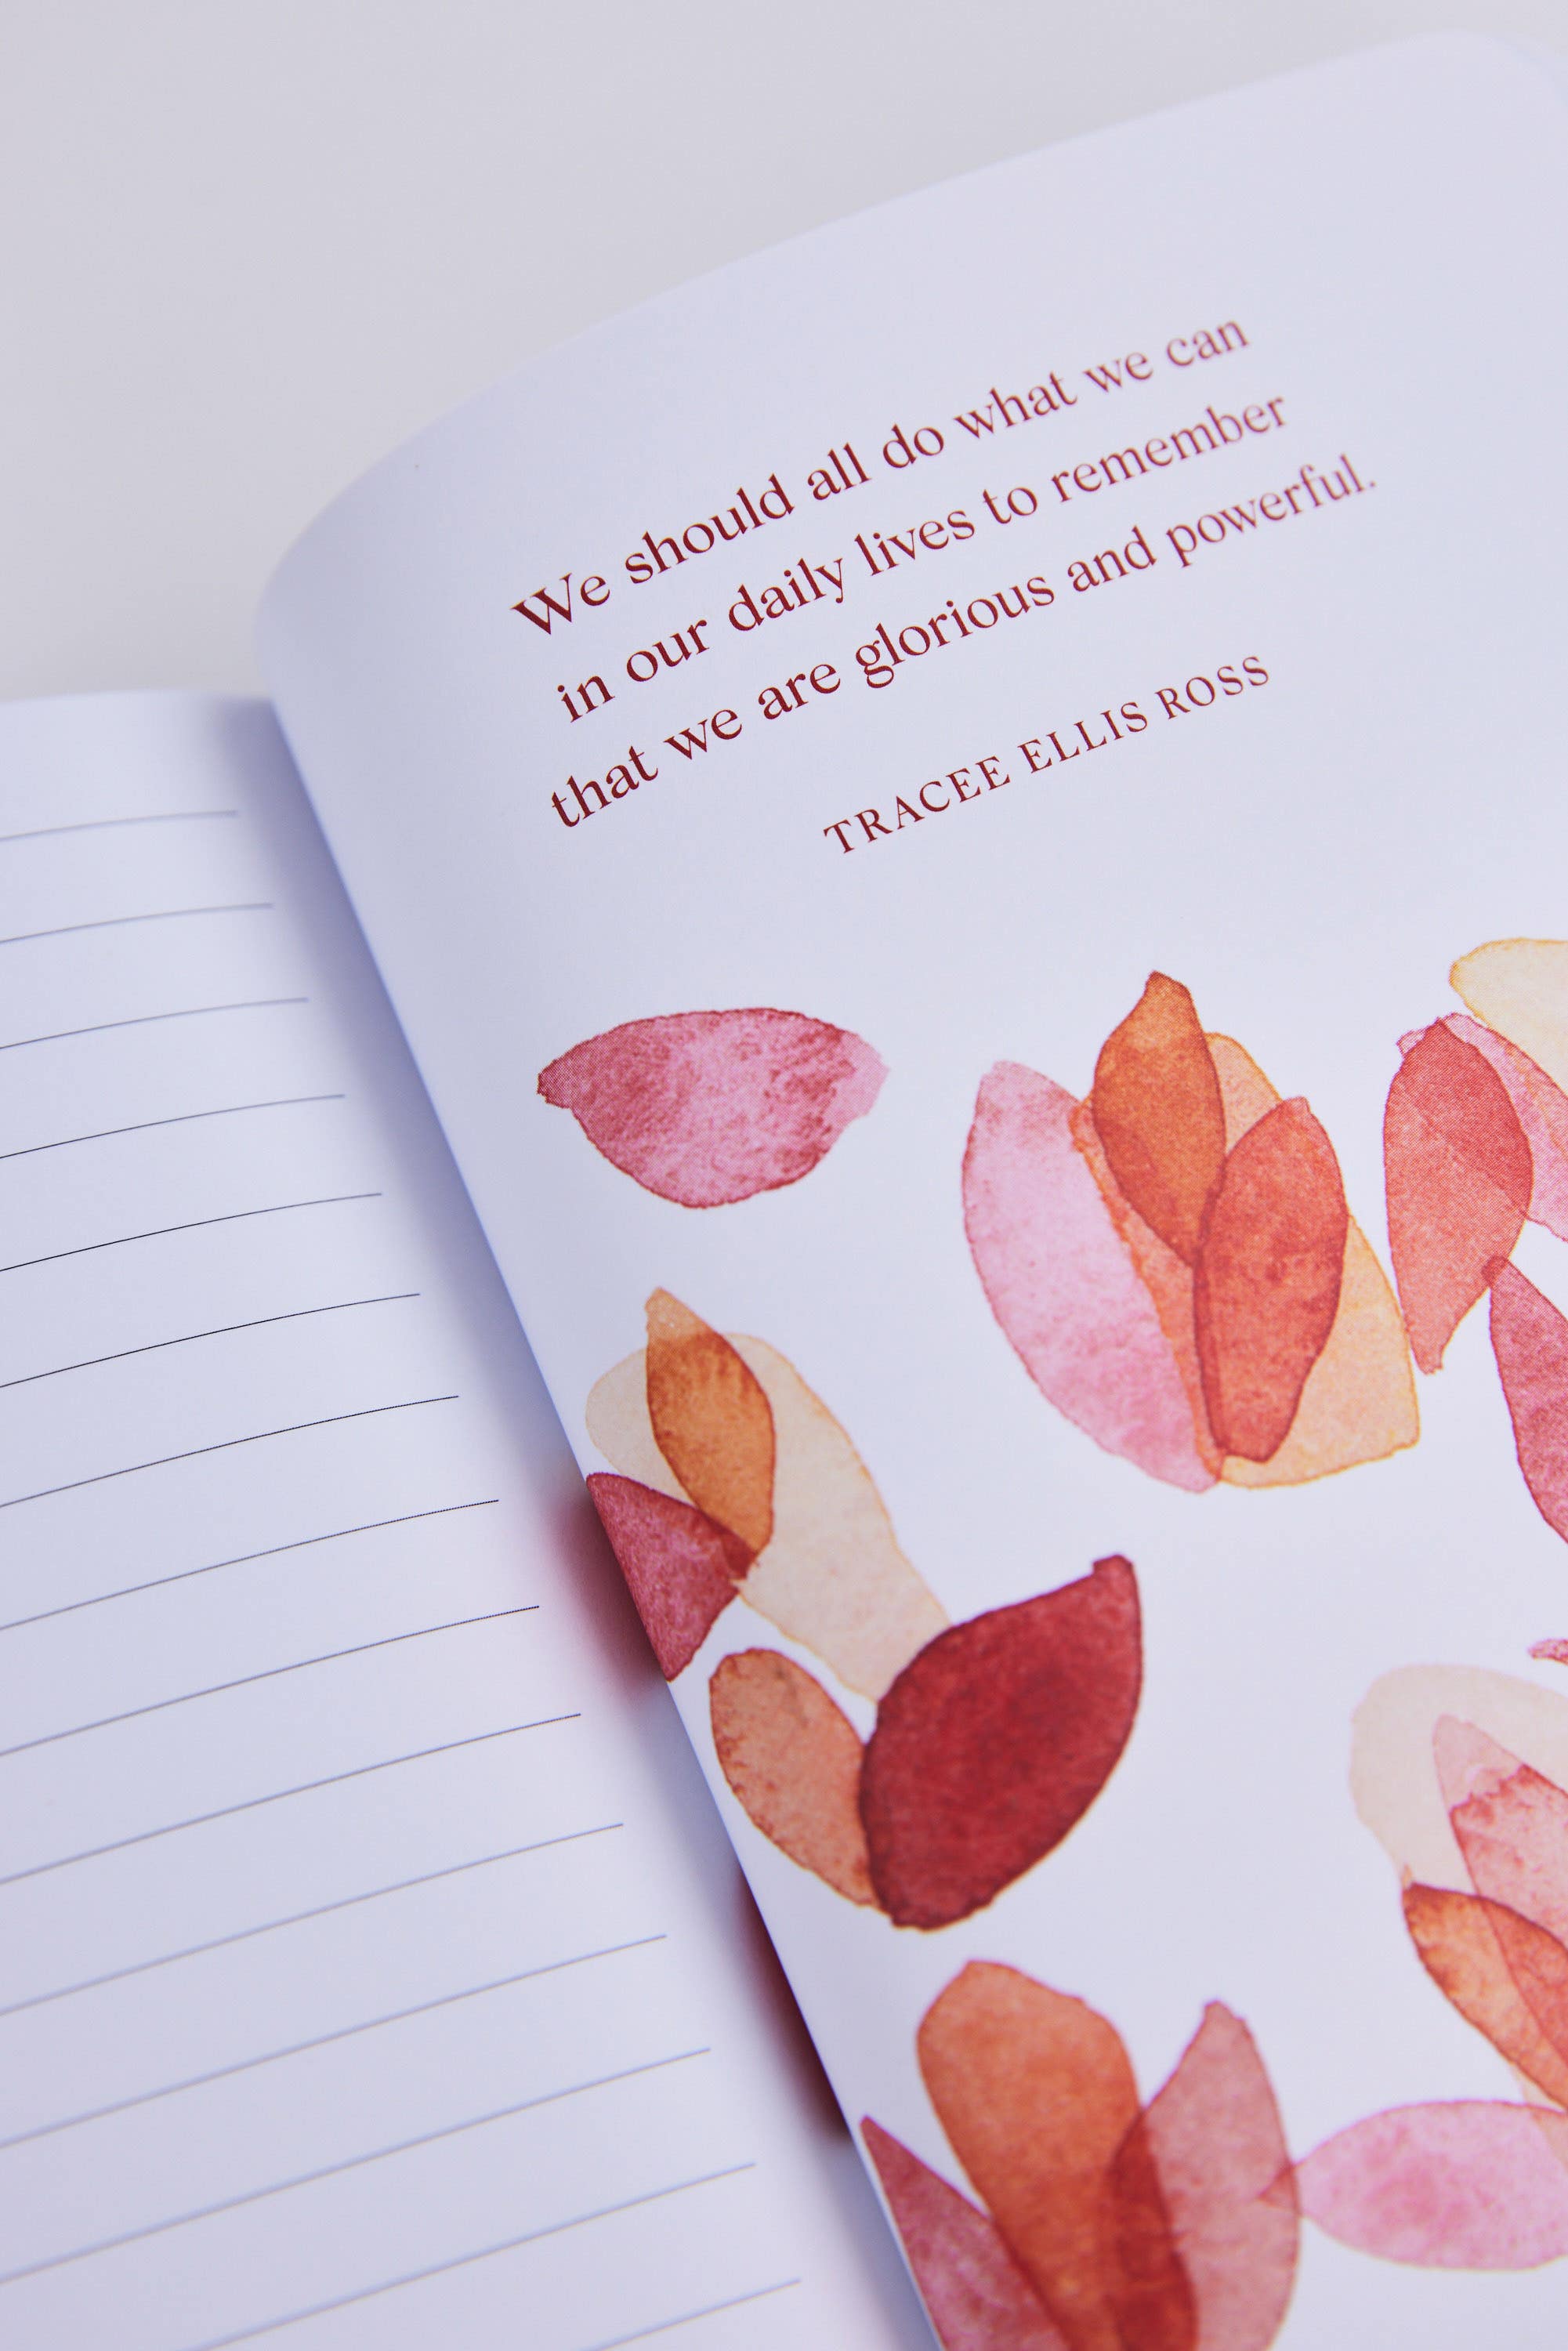 We should all do what we can
in our daily lives to remember
that we are glorious and powerful.
TRACEE ELLIS ROSS